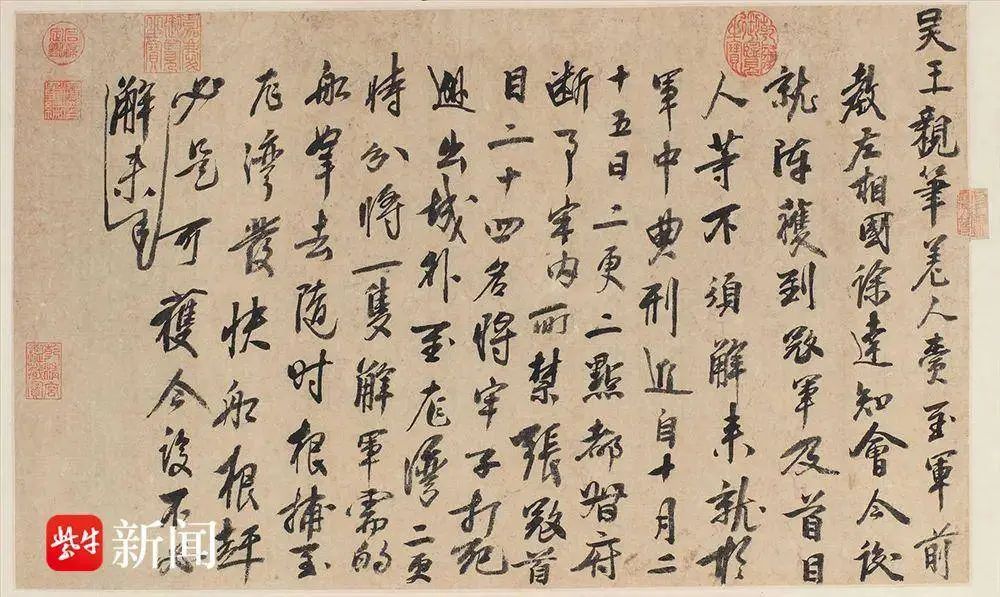 吳王親筆差人賫至軍前
教左相國徐達知會今後
就陣獲到寇軍及首目
人等不須解来就於
軍中典刑近自十月二
十五日二更二點都督府
断事牢内所禁張寇首
目二十四名將牢子打死
逃出城外至龍灣二更
時分將一隻解軍需的
船拏去随时根捕至
龍灣發快船根赶
必是可獲今後不必
解来也
紫牛新闻